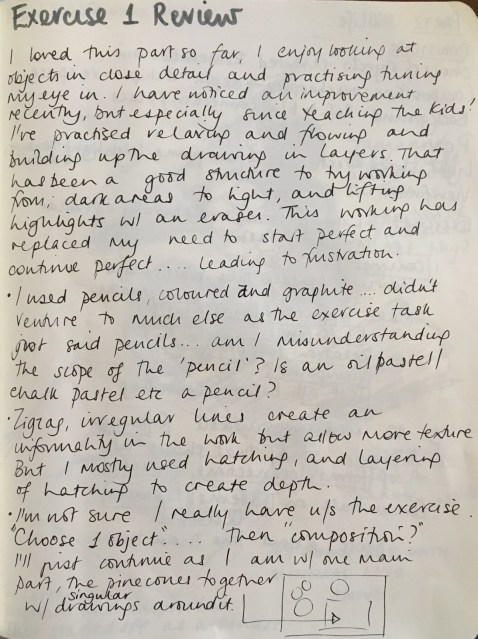 Exercise 1 Review
I loved this part so far, I enjoy looking at
objects in close detail and practising tuning
my eye in. I have noticed an improvement
recently, but especially since teaching the kids!
I've practised relaxing and flowing and
building up the drawing in layers. That
has been a good structure to try working
from; dark areas to light, and lifting
highlights w/ an eraser. This working has
replaced my need to start perfect and
continue perfect.... leading to frustration.
• I used pencils, coloured and graphite.... didn't
venture to much else as the exercise task
just said pencils... am I misunderstanding
the scope of the 'pencil'? Is an oil pastel/
chalk pastel etc a pencil?
• Zigzag, irregular lines create an
informality in the work but allow more texture
But I mostly used hatching, and layering
of hatching to create depth.
• I'm not sure I really have u/s the exercise.
"Choose 1 object".... Then "composition?"
I'll just continue as I am w/ one main
part, the pinecones together
w/ singular drawings around it.